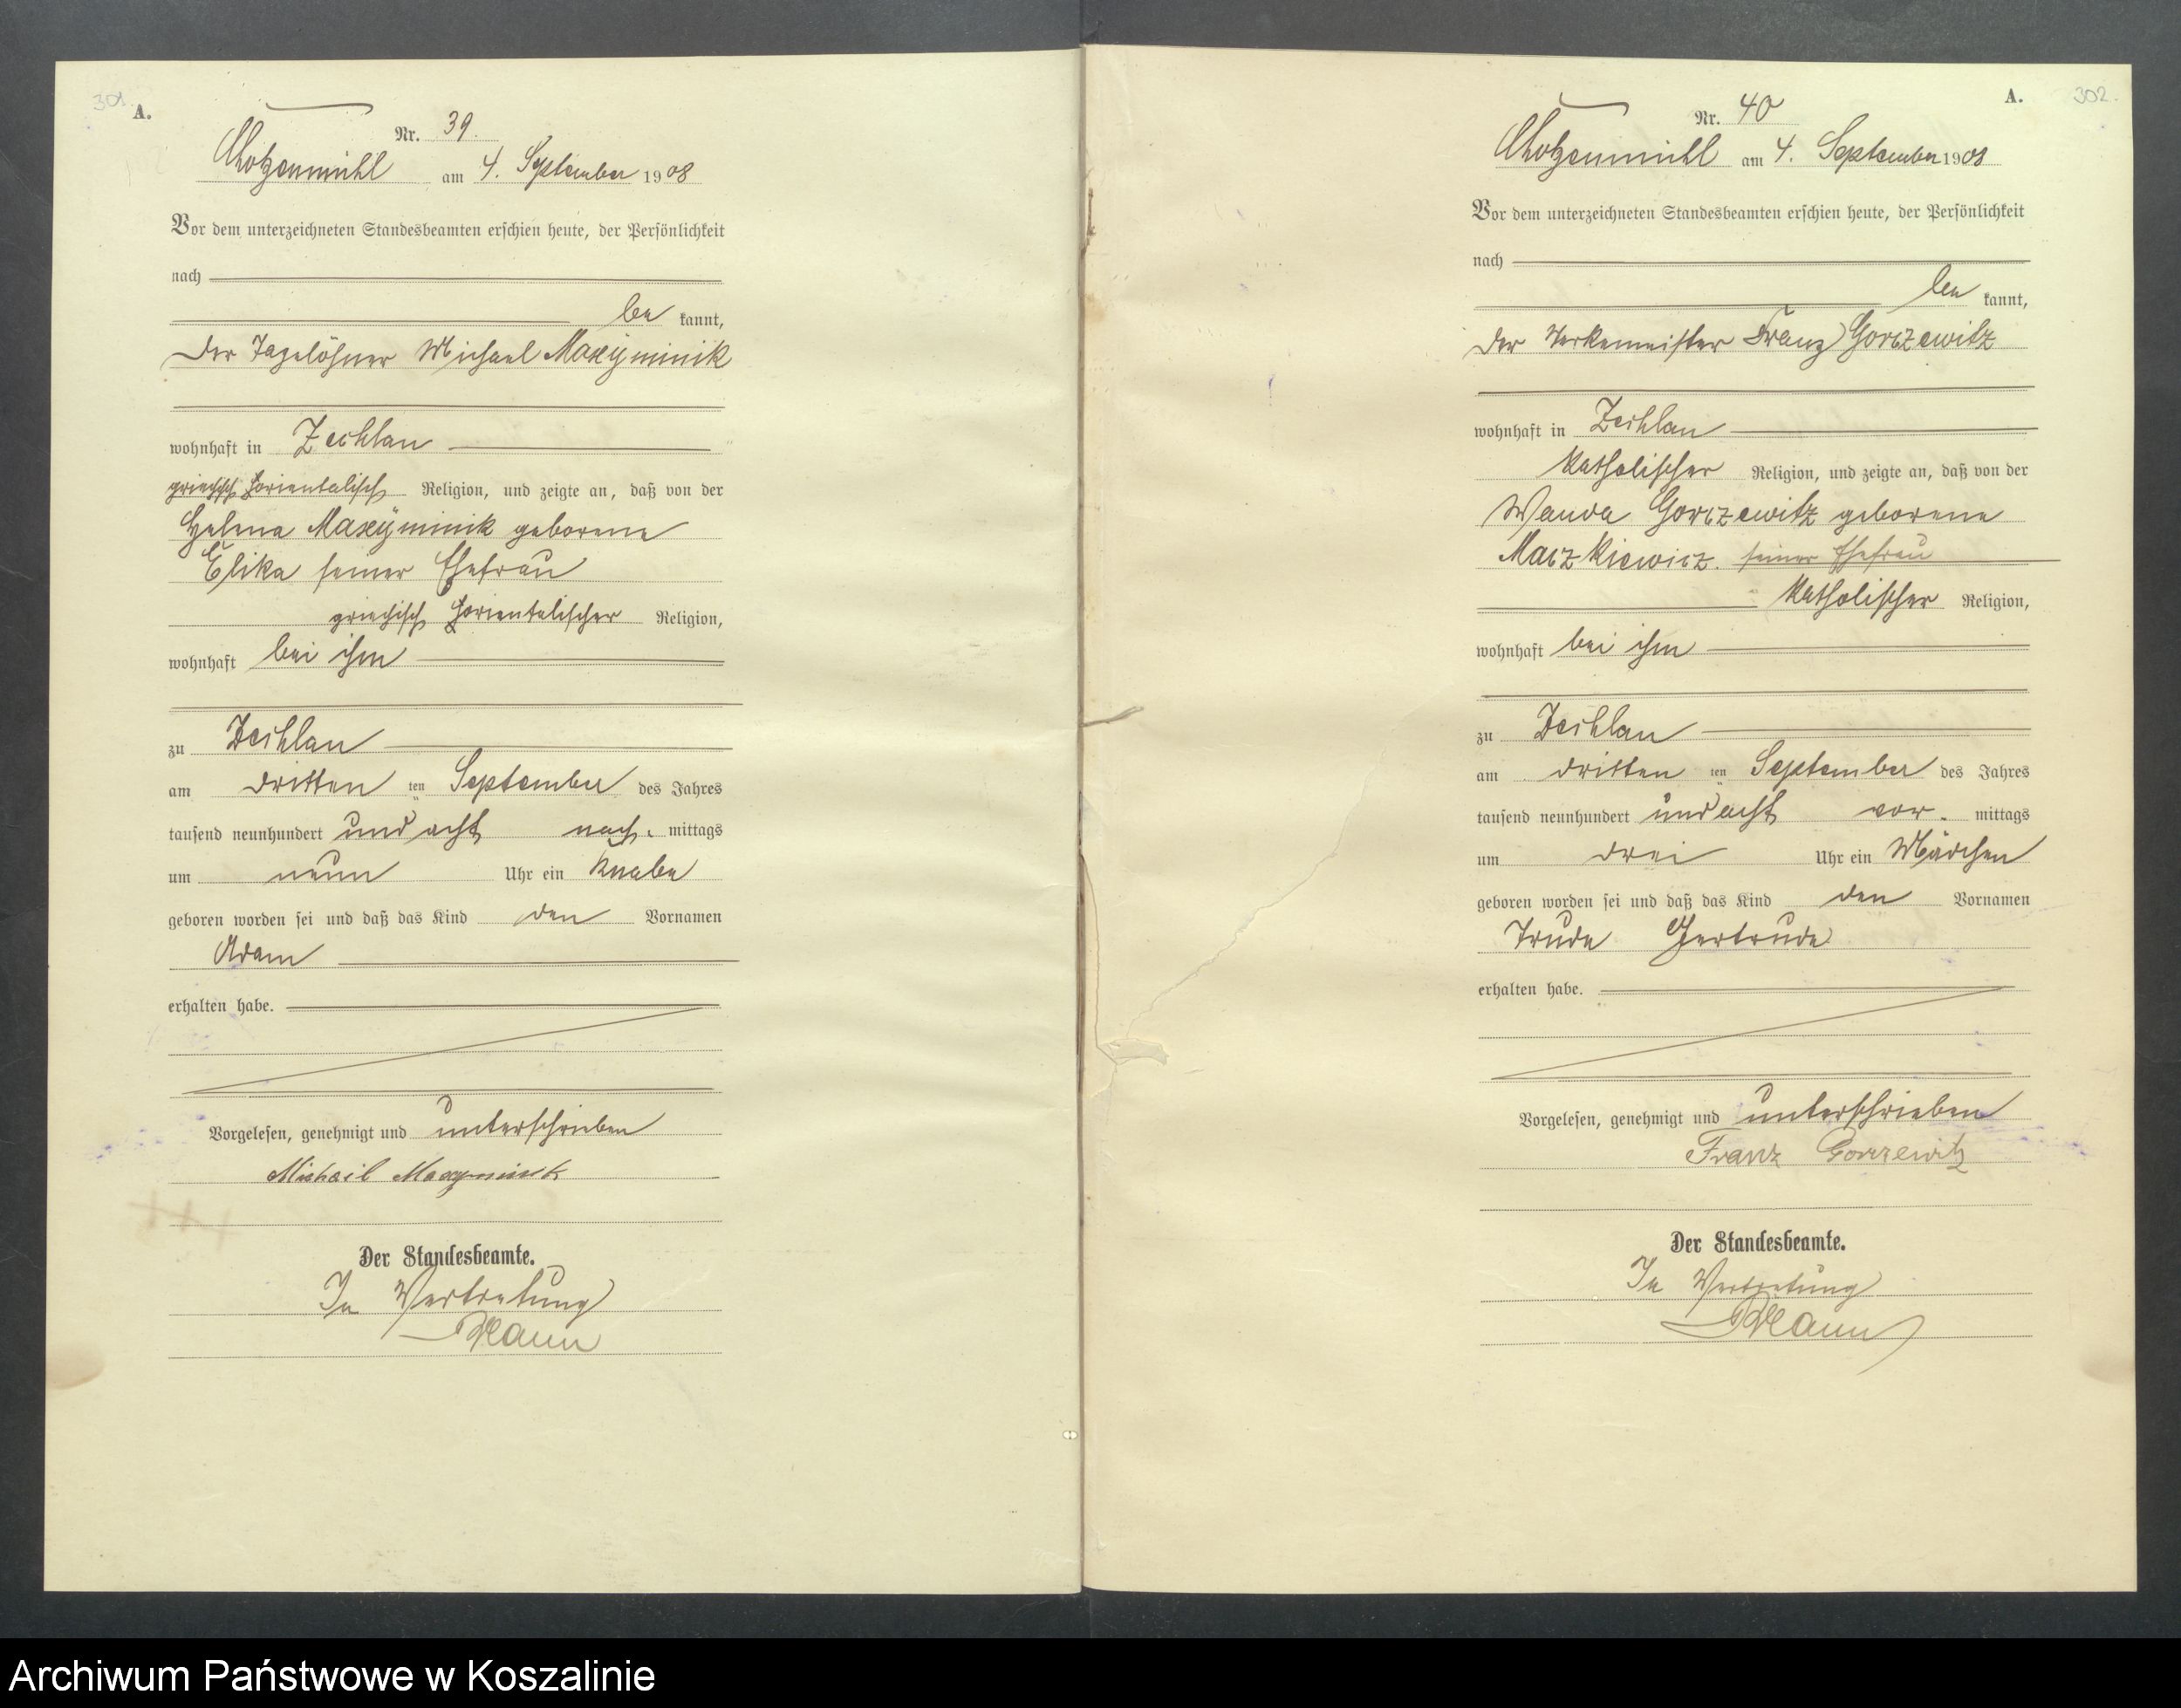 301.
A.
Nr. 39.
Chotzenmühl am 4. September 1908
Vor dem unterzeichneten Standesbeamten erschien heute, der Persönlichkeit
nach
be kannt,
der Tagelöhner Michael Maxÿminik
wohnhaft in Zechlau
griechisch orientalisch Religion, und zeigte an, daß von der
Helena Maxÿminik geborene
Elika seiner Ehefrau
griechisch orientalischer Religion,
wohnhaft bei ihm
zu Zechlau
am dritten ten September des Jahres
tausend neunhundert und acht nach mittags
um neun Uhr ein Knabe
geboren worden sei und daß das Kind den Vornamen
Adam
erhalten habe.
Vorgelesen, genehmigt und unterschrieben
Michail Maxyminik
Der Standesbeamte.
In Vertretung
A. 302.
Nr. 40
Chotzenmühl am 4. September 1908
Vor dem unterzeichneten Standesbeamten erschien heute, der Persönlichkeit
nach
be kannt,
der Werkmeister Franz Gorczewitz
wohnhaft in Zechlau
katholischer Religion, und zeigte an, daß von der
Wanda Gorczewitz geborene
Maczkiewicz. seiner Ehefrau
katholischer Religion,
wohnhaft bei ihm
zu Zechlau
am dritten ten September des Jahres
tausend neunhundert und acht vor mittags
um drei Uhr ein Mädchen
geboren worden sei und daß das Kind den Vornamen
Trude Gertrude
erhalten habe.
Vorgelesen, genehmigt und unterschrieben
Franz Gorczewitz
Der Standesbeamte.
In Vertretung
Archiwum Państwowe w Koszalinie